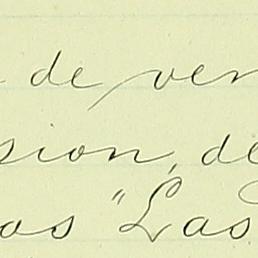 de ven
sion, de
os "Las